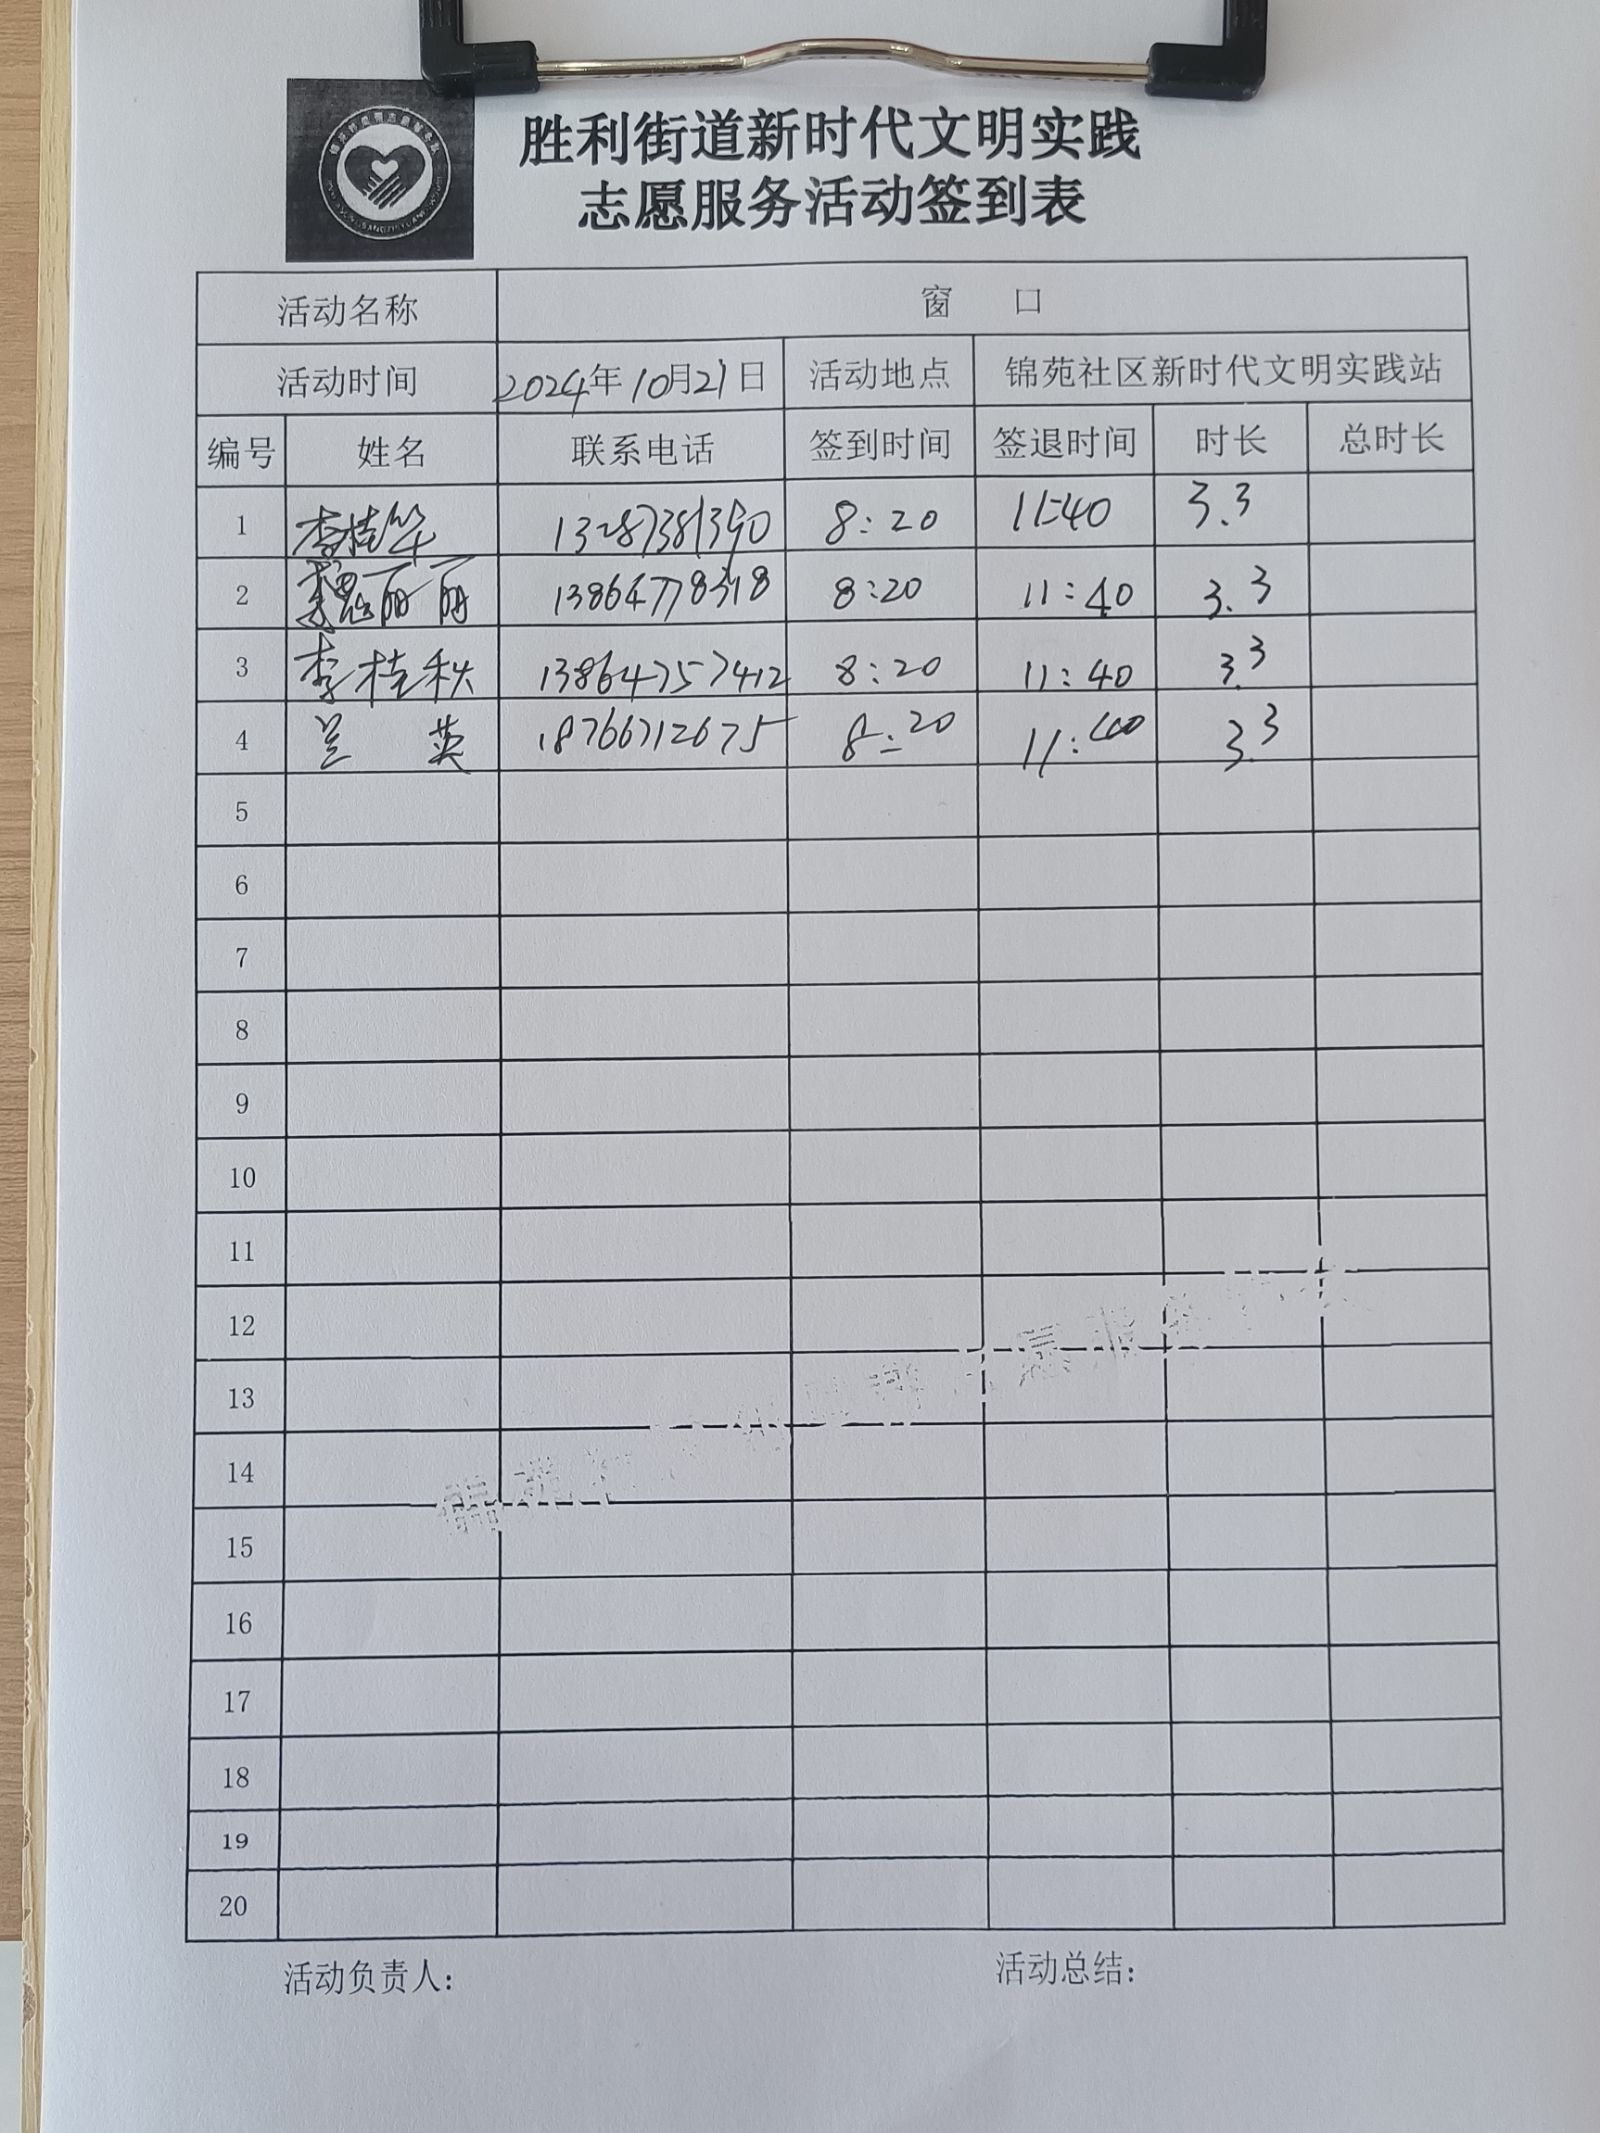 胜利街道新时代文明实践
志愿服务活动签到表
活动名称 窗 口
活动时间 2024年10月21日 活动地点 锦苑社区新时代文明实践站
编号 姓名 联系电话 签到时间 签退时间 时长 总时长
1 李桂华 13287381390 8:20 11:40 3.3
2 魏丽丽 13864778318 8:20 11:40 3.3
3 李桂秋 13864757412 8:20 11:40 3.3
4 兰 英 18766712675 8:20 11:40 3.3
5
6
7
8
9
10
11
12
13
14
15
16
17
18
19
20
活动负责人: 活动总结: